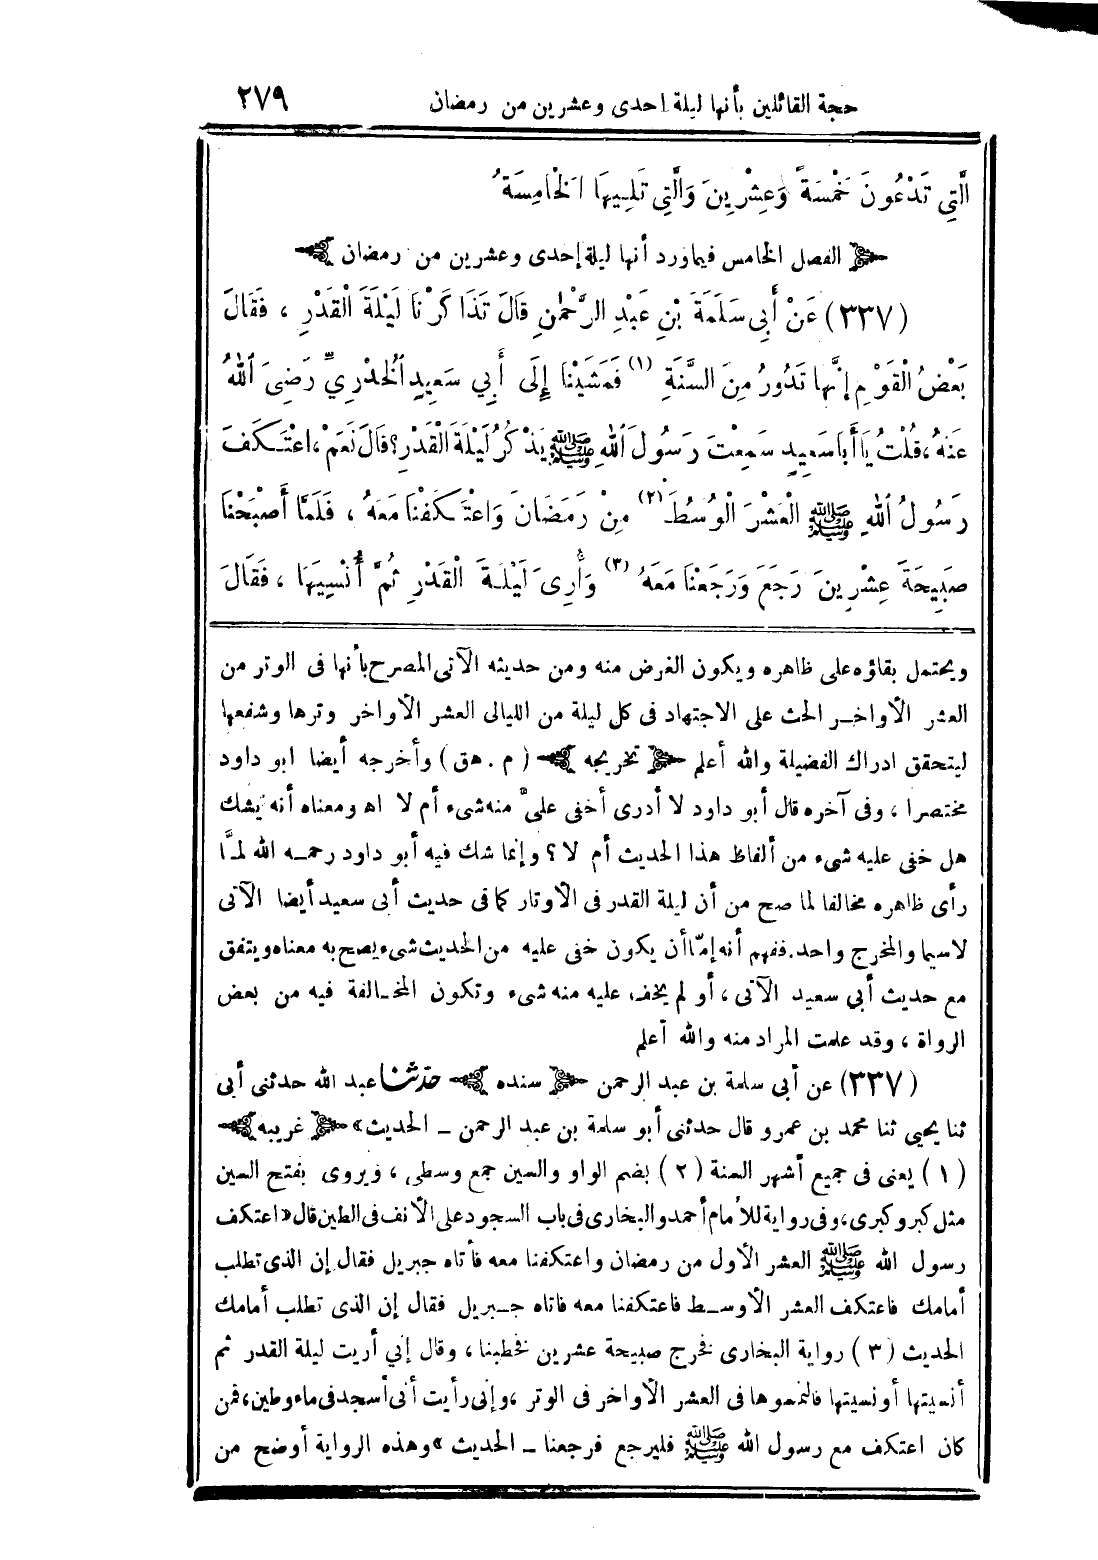 حجة القائلين بأنها ليلة احدى وعشرين من رمضان ٢٧٩
الَّتِي تَدْعُونَ خَمْسَةً وَعِشْرِينَ وَالَّتِي تَلِيهَا الْخَامِسَةُ
﴿ الفصل الخامس فيما ورد أنها ليلة إحدى وعشرين من رمضان ﴾
(٣٣٧) عَنْ أَبِي سَلَمَةَ بْنِ عَبْدِ الرَّحْمٰنِ قَالَ تَذَاكَرْنَا لَيْلَةَ الْقَدْرِ ، فَقَالَ
بَعْضُ الْقَوْمِ إِنَّهَا تَدُورُ مِنَ السَّنَةِ (١) فَمَشَيْنَا إِلَى أَبِي سَعِيدٍ الْخُدْرِيِّ رَضِيَ اللهُ
عَنْهُ، قُلْتُ يَا أَبَا سَعِيدٍ سَمِعْتَ رَسُولَ اللهِ ﷺ يَذْكُرُ لَيْلَةَ الْقَدْرِ؟ قَالَ نَعَمْ، اعْتَكَفَ
رَسُولُ اللهِ ﷺ الْعَشْرَ الْوُسُطَ (٢) مِنْ رَمَضَانَ وَاعْتَكَفْنَا مَعَهُ ، فَلَمَّا أَصْبَحْنَا
صَبِيحَةَ عِشْرِينَ رَجَعَ وَرَجَعْنَا مَعَهُ (٣) وَأُرِىَ لَيْلَةَ الْقَدْرِ ثُمَّ أُنْسِيَهَا ، فَقَالَ
ويحتمل بقاؤه على ظاهره ويكون الغرض منه ومن حديثه الآتى المصرح بأنها فى الوتر من
العشر الأواخر الحث على الاجتهاد فى كل ليلة من الليالى العشر الأواخر وترها وشفعها
ليتحقق ادراك الفضيلة والله أعلم ﴿ تخريجه ﴾ ( م . هق ) وأخرجه أيضا ابو داود
مختصرا ، وفى آخره قال أبو داود لا أدرى أخفى علىّ منه شىء أم لا اه ومعناه أنه يشك
هل خفى عليه شىء من ألفاظ هذا الحديث أم لا ؟ وإنما شك فيه أبو داود رحمه الله لمَّا
رأى ظاهره مخالفا لما صح من أن ليلة القدر فى الأوتار كما فى حديث أبى سعيد أيضا الآتى
لاسيما والمخرج واحد. ففهم أنه إمّا أن يكون خفى عليه من الحديث شىء يصح به معناه ويتفق
مع حديث أبي سعيد الآتى ، أو لم يخف عليه منه شىء وتكون المخالفة فيه من بعض
الرواة ، وقد علمت المراد منه والله أعلم
(٣٣٧) عن أبى سلمة بن عبد الرحمن ﴿ سنده ﴾ حدثنا عبد الله حدثنى أبى
ثنا يحيى ثنا محمد بن عمرو قال حدثنى أبو سلمة بن عبد الرحمن ـ الحديث» ﴿ غريبه ﴾
( ١ ) يعنى فى جميع أشهر السنة ( ٢ ) بضم الواو والسين جمع وسطى ، ويروى بفتح السين
مثل كبر وكبرى، وفى رواية للأمام أحمد والبخارى فى باب السجود على الأنف فى الطين قال « اعتكف
رسول الله ﷺ العشر الأول من رمضان واعتكفنا معه فأتاه جبريل فقال إن الذى تطلب
أمامك فاعتكف العشر الأوسط فاعتكفنا معه فاتاه جبريل فقال إن الذى تطلب أمامك
الحديث ( ٣ ) رواية البخارى فخرج صبيحة عشرين فخطبنا ، وقال إني أريت ليلة القدر ثم
أنسيتها أو نسيتها فالتمسوها فى العشر الأواخر فى الوتر ، وإنى رأيت أنى أسجد فى ماء وطين، فمن
كان اعتكف مع رسول الله ﷺ فليرجع فرجعنا ـ الحديث » وهذه الرواية أوضح من